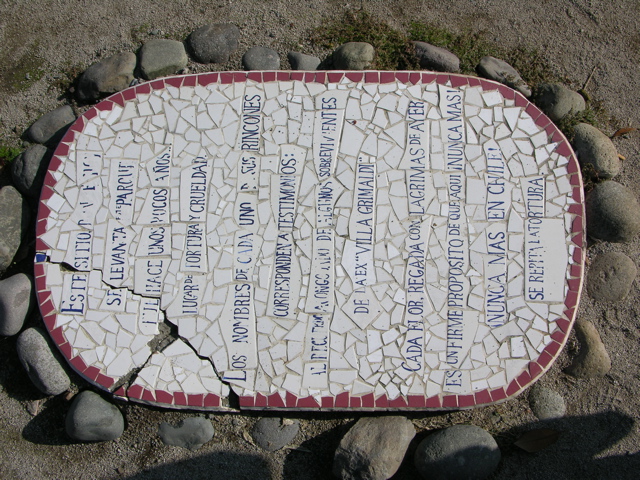 ESTE SITIO
SE LEVANTA PARQUE
FUE HACE UNOS POCOS AÑOS..
LUGAR TORTURA Y CRUELDAD.
LOS NOMBRES DE CADA UNO DE SUS RINCONES
CORRESPONDEN A TESTIMONIOS:
DE ALGUNOS SOBREVIVIENTES
DE LA EX "VILLA GRIMALDI"
CADA FLOR, REGADA CON LAGRIMAS DE AYER
ES UN FIRME PROPOSITO DE QUE AQUI ¡NUNCA MAS!
¡NUNCA MAS EN CHILE!
SE REPITA LA TORTURA.